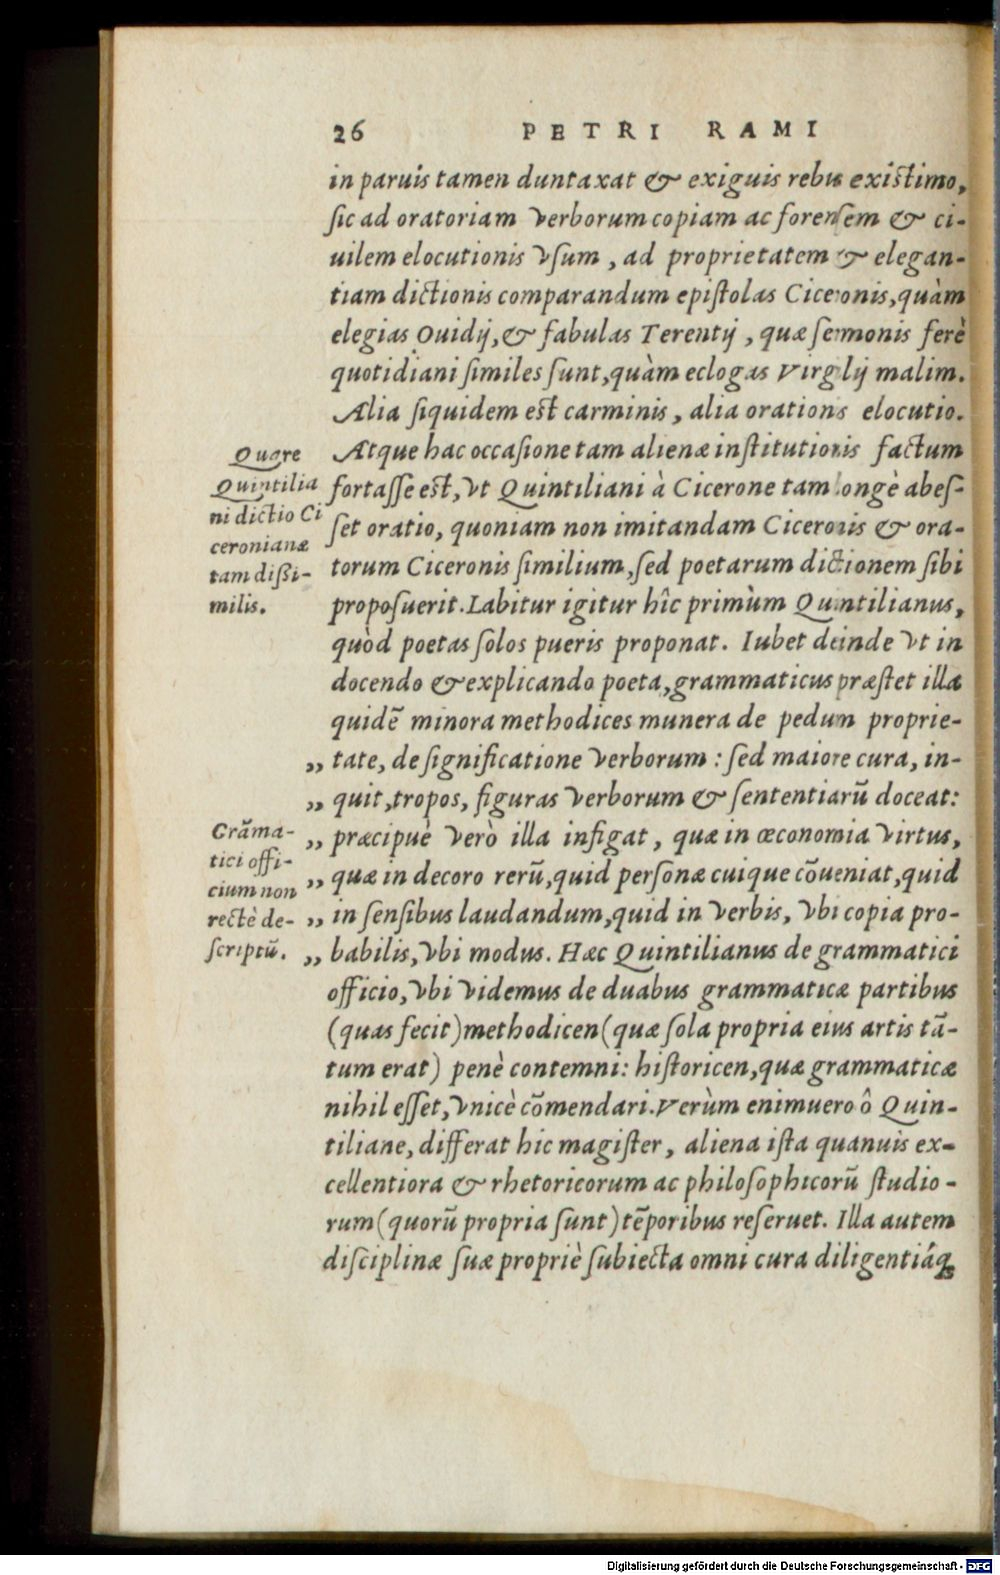 26 PETRI RAMI
in paruis tamen duntaxat & exiguis rebus existimo,
sic ad oratoriam verborum copiam ac forensem & ci-
uilem elocutionis vsum, ad proprietatem & elegan-
tiam dictionis comparandum epistolas Ciceronis, quàm
elegias Ouidij, & fabulas Terentij, quæ sermonis ferè
quotidiani similes sunt, quàm eclogas Virgilij malim.
Alia siquidem est carminis, alia orationis elocutio.
Atque hac occasione tam alienæ institutionis factum
fortasse est, vt Quintiliani à Cicerone tam longè abes-
set oratio, quoniam non imitandam Ciceronis & ora-
torum Ciceronis similium, sed poetarum dictionem sibi
proposuerit. Labitur igitur hîc primùm Quintilianus,
quòd poetas solos pueris proponat. Iubet deinde vt in
docendo & explicando poeta, grammaticus præstet illa
quidẽ minora methodices munera de pedum proprie-
„ tate, de significatione verborum: sed maiore cura, in-
„ quit, tropos, figuras verborum & sententiarũ doceat:
„ præcipuè verò illa infigat, quæ in œconomia virtus,
„ quæ in decoro rerũ, quid personæ cuique cõueniat, quid
„ in sensibus laudandum, quid in verbis, vbi copia pro-
„ babilis, vbi modus. Hæc Quintilianus de grammatici
officio, vbi videmus de duabus grammaticæ partibus
(quas fecit) methodicen (quæ sola propria eius artis tã-
tum erat) penè contemni: historicen, quæ grammaticæ
nihil esset, vnicè cõmendari. Verùm enimuero ô Quin-
tiliane, differat hic magister, aliena ista quanuis ex-
cellentiora & rhetoricorum ac philosophicorũ studio-
rum (quorũ propria sunt) tẽporibus reseruet. Illa autem
disciplinæ suæ propriè subiecta omni cura diligentiáq;
Quare
Quintilia
ni dictio Ci
ceronianæ
tam dissi-
milis.
Grãma-
tici offi-
cium non
rectè de-
scriptũ.
Digitalisierung gefördert durch die Deutsche Forschungsgemeinschaft - DFG